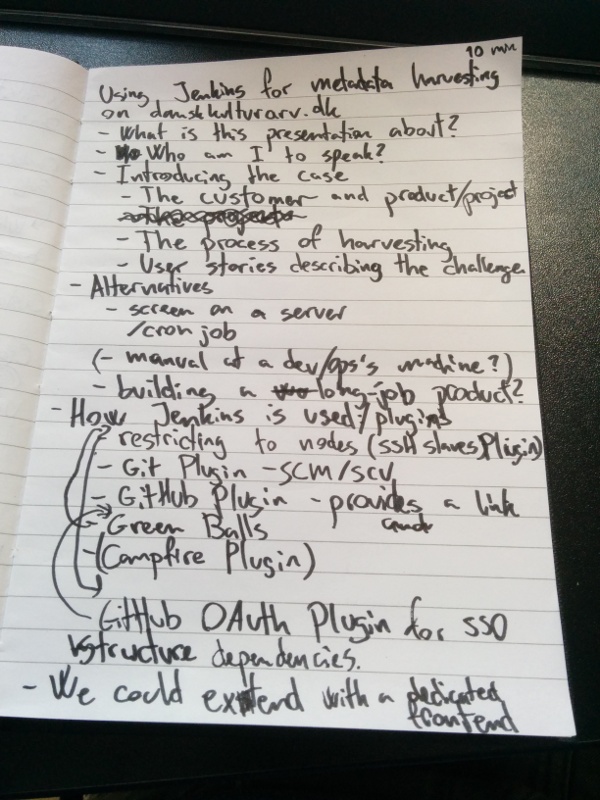 10 min
Using Jenkins for metadata harvesting
on danskkulturarv.dk
- What is this presentation about?
- Who am I to speak?
- Introducing the case
- The customer and product/project
- The process of harvesting
- User stories describing the challenge
- Alternatives
- screen on a server
/cron job
(- manual at a dev/ops's machine?)
- building a long-job product?
- How Jenkins is used?/plugins
- restricting to nodes (SSH slaves Plugin)
- Git Plugin - SCM/SCV
- GitHub Plugin - provides a link
- Green Balls
- (Campfire Plugin)
- GitHub OAuth Plugin for SSO
structure dependencies.
- We could extend with a dedicated
frontend